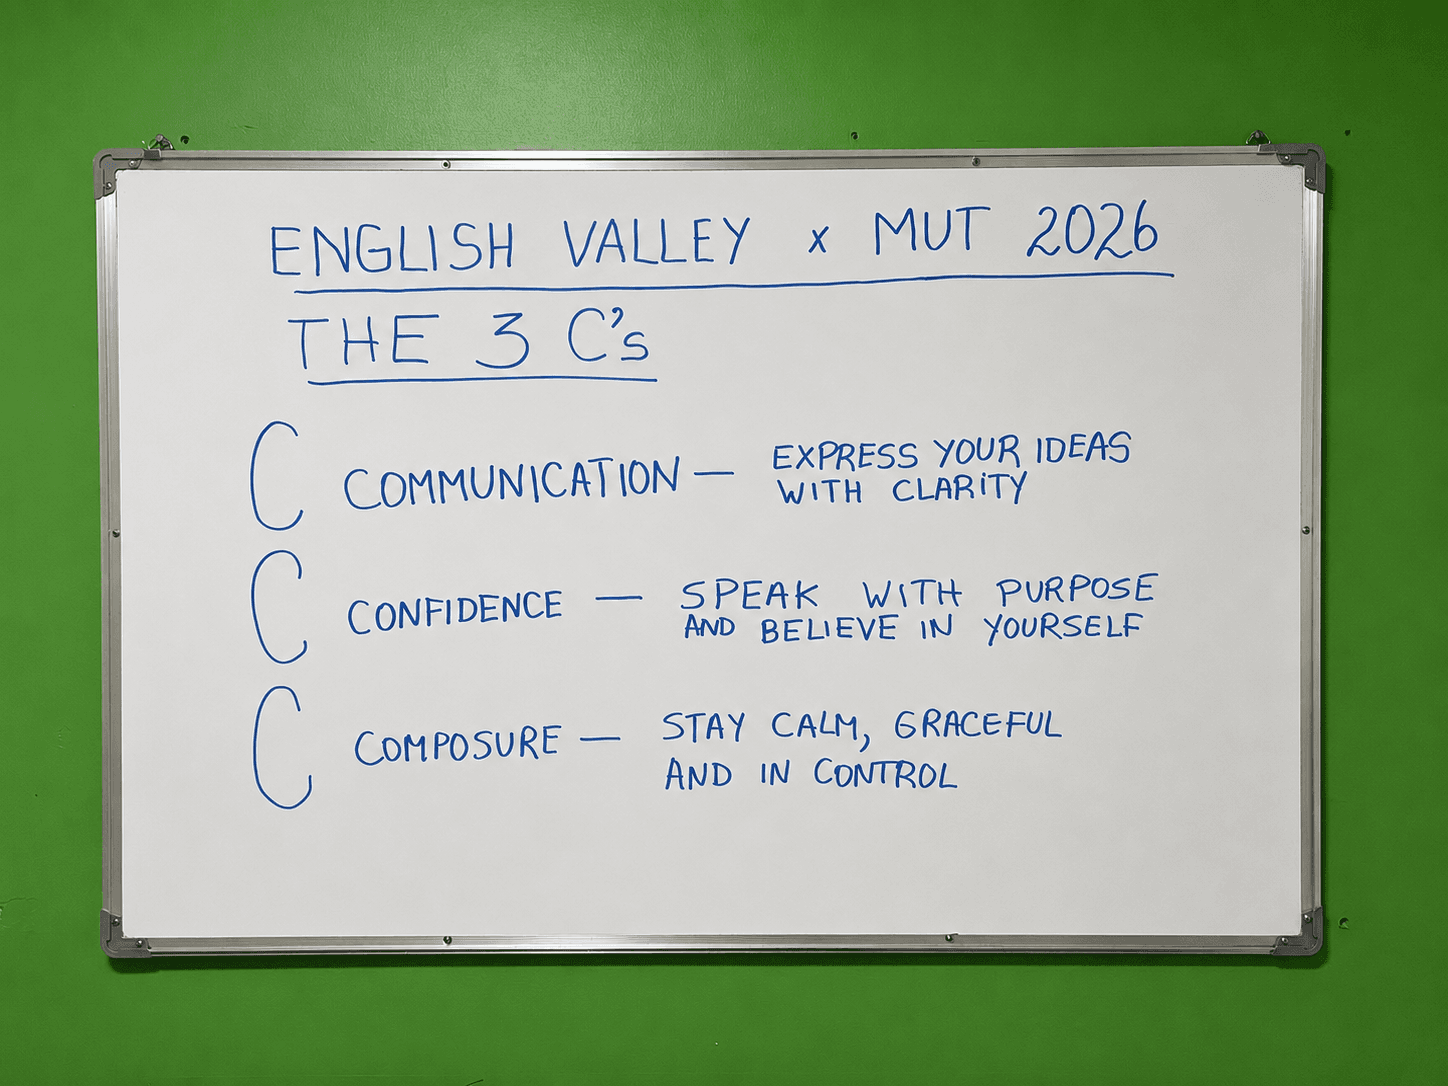 ENGLISH VALLEY x MUT 2026
THE 3 C's
C COMMUNICATION — EXPRESS YOUR IDEAS
WITH CLARITY
C CONFIDENCE — SPEAK WITH PURPOSE
AND BELIEVE IN YOURSELF
C COMPOSURE — STAY CALM, GRACEFUL
AND IN CONTROL